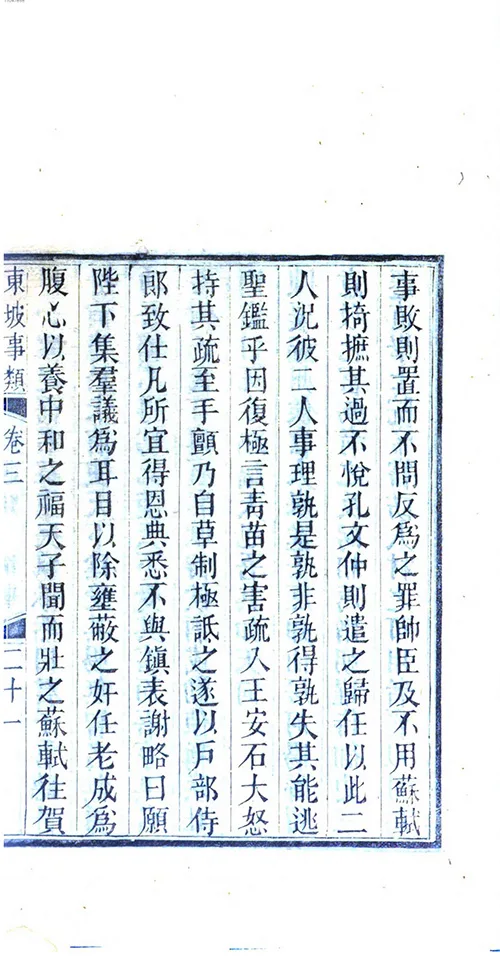 事敗則置而不問反爲之罪帥臣及不用蘇軾
則掎摭其過不悅孔文仲則遣之歸任以此二
人況彼二人事理孰是孰非孰得孰失其能逃
聖鑑乎因復極言靑苗之害疏入王安石大怒
持其疏至手顫乃自草制極詆之遂以戶部侍
郎致仕凡所宜得恩典悉不與鎮表謝略曰願
陛下集羣議爲耳目以除壅蔽之奸任老成爲
腹心以養中和之福天子聞而壯之蘇軾往賀
東坡事類 卷三 二十一